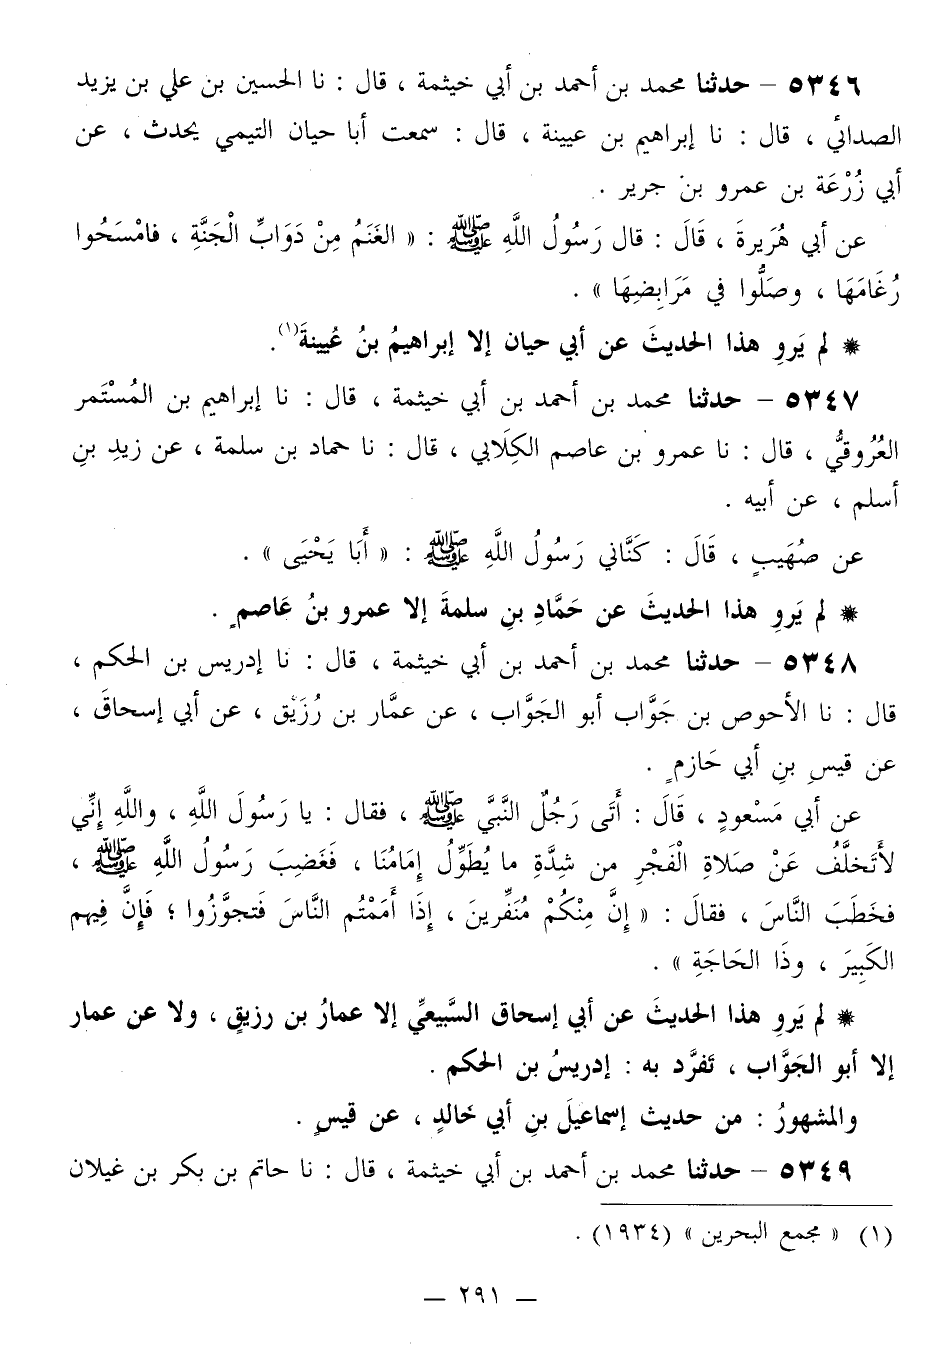 ٥٣٤٦ – حدثنا محمد بن أحمد بن أبي خيثمة ، قال : نا الحسين بن علي بن يزيد
الصدائي ، قال : نا إبراهيم بن عيينة ، قال : سمعت أبا حيان التيمي يحدث ، عن
أبي زُرْعَة بن عمرو بن جرير .
عن أبي هُرَيرةَ ، قَالَ : قال رَسُولُ اللَّهِ ﷺ : « الغَنَمُ مِنْ دَوَابِّ الْجَنَّةِ ، فامْسَحُوا
رُغَامَهَا ، وصَلُّوا في مَرَابِضِهَا » .
* لم يَروِ هذا الحديثَ عن أبي حيان إلا إبراهيمُ بنُ عُيينةَ(١).
٥٣٤٧ – حدثنا محمد بن أحمد بن أبي خيثمة ، قال : نا إبراهيم بن المُسْتَمر
العُرُوقيُّ ، قال : نا عمرو بن عاصم الكِلَابي ، قال : نا حماد بن سلمة ، عن زيدِ بنِ
أسلم ، عن أبيه .
عن صُهَيبٍ ، قَالَ : كَنَّاني رَسُولُ اللَّهِ ﷺ : « أَبَا يَحْيَى » .
* لم يَروِ هذا الحديثَ عن حَمَّادِ بنِ سلمةَ إلا عمرو بنُ عَاصمٍ .
٥٣٤٨ – حدثنا محمد بن أحمد بن أبي خيثمة ، قال : نا إدريس بن الحكم ،
قال : نا الأحوص بن جَوَّاب أبو الجَوَّاب ، عن عمَّار بن رُزَيْق ، عن أبي إسحاقَ ،
عن قيسِ بنِ أبي حَازمٍ .
عن أبي مَسْعودٍ ، قَالَ : أَتَى رَجُلٌ النَّبيَّ ﷺ ، فقال : يا رَسُولَ اللَّهِ ، واللَّهِ إنِّي
لأَتَخلَّفُ عَنْ صَلاةِ الْفَجْرِ من شدَّةِ ما يُطَوِّلُ إمَامُنَا ، فَغَضِبَ رَسُولُ اللَّهِ ﷺ ،
فخَطَبَ النَّاسَ ، فقالَ : « إنَّ مِنْكُمْ مُنَفِّرينَ ، إذَا أَمَمْتُم النَّاسَ فَتجوَّزُوا ؛ فَإنَّ فِيهم
الكَبِيرَ ، وذَا الحَاجَةِ » .
* لم يَروِ هذا الحديثَ عن أبي إسحاق السَّبيعيِّ إلا عمارُ بن رزيقٍ ، ولا عن عمار
إلا أبو الجَوَّاب ، تَفرَّد به : إدريسُ بن الحكم .
والمشهورُ : من حديث إسماعيلَ بنِ أبي خَالدٍ ، عن قيسٍ .
٥٣٤٩ – حدثنا محمد بن أحمد بن أبي خيثمة ، قال : نا حاتم بن بكر بن غيلان
(١) « مجمع البحرين » (١٩٣٤) .
— ٢٩١ —